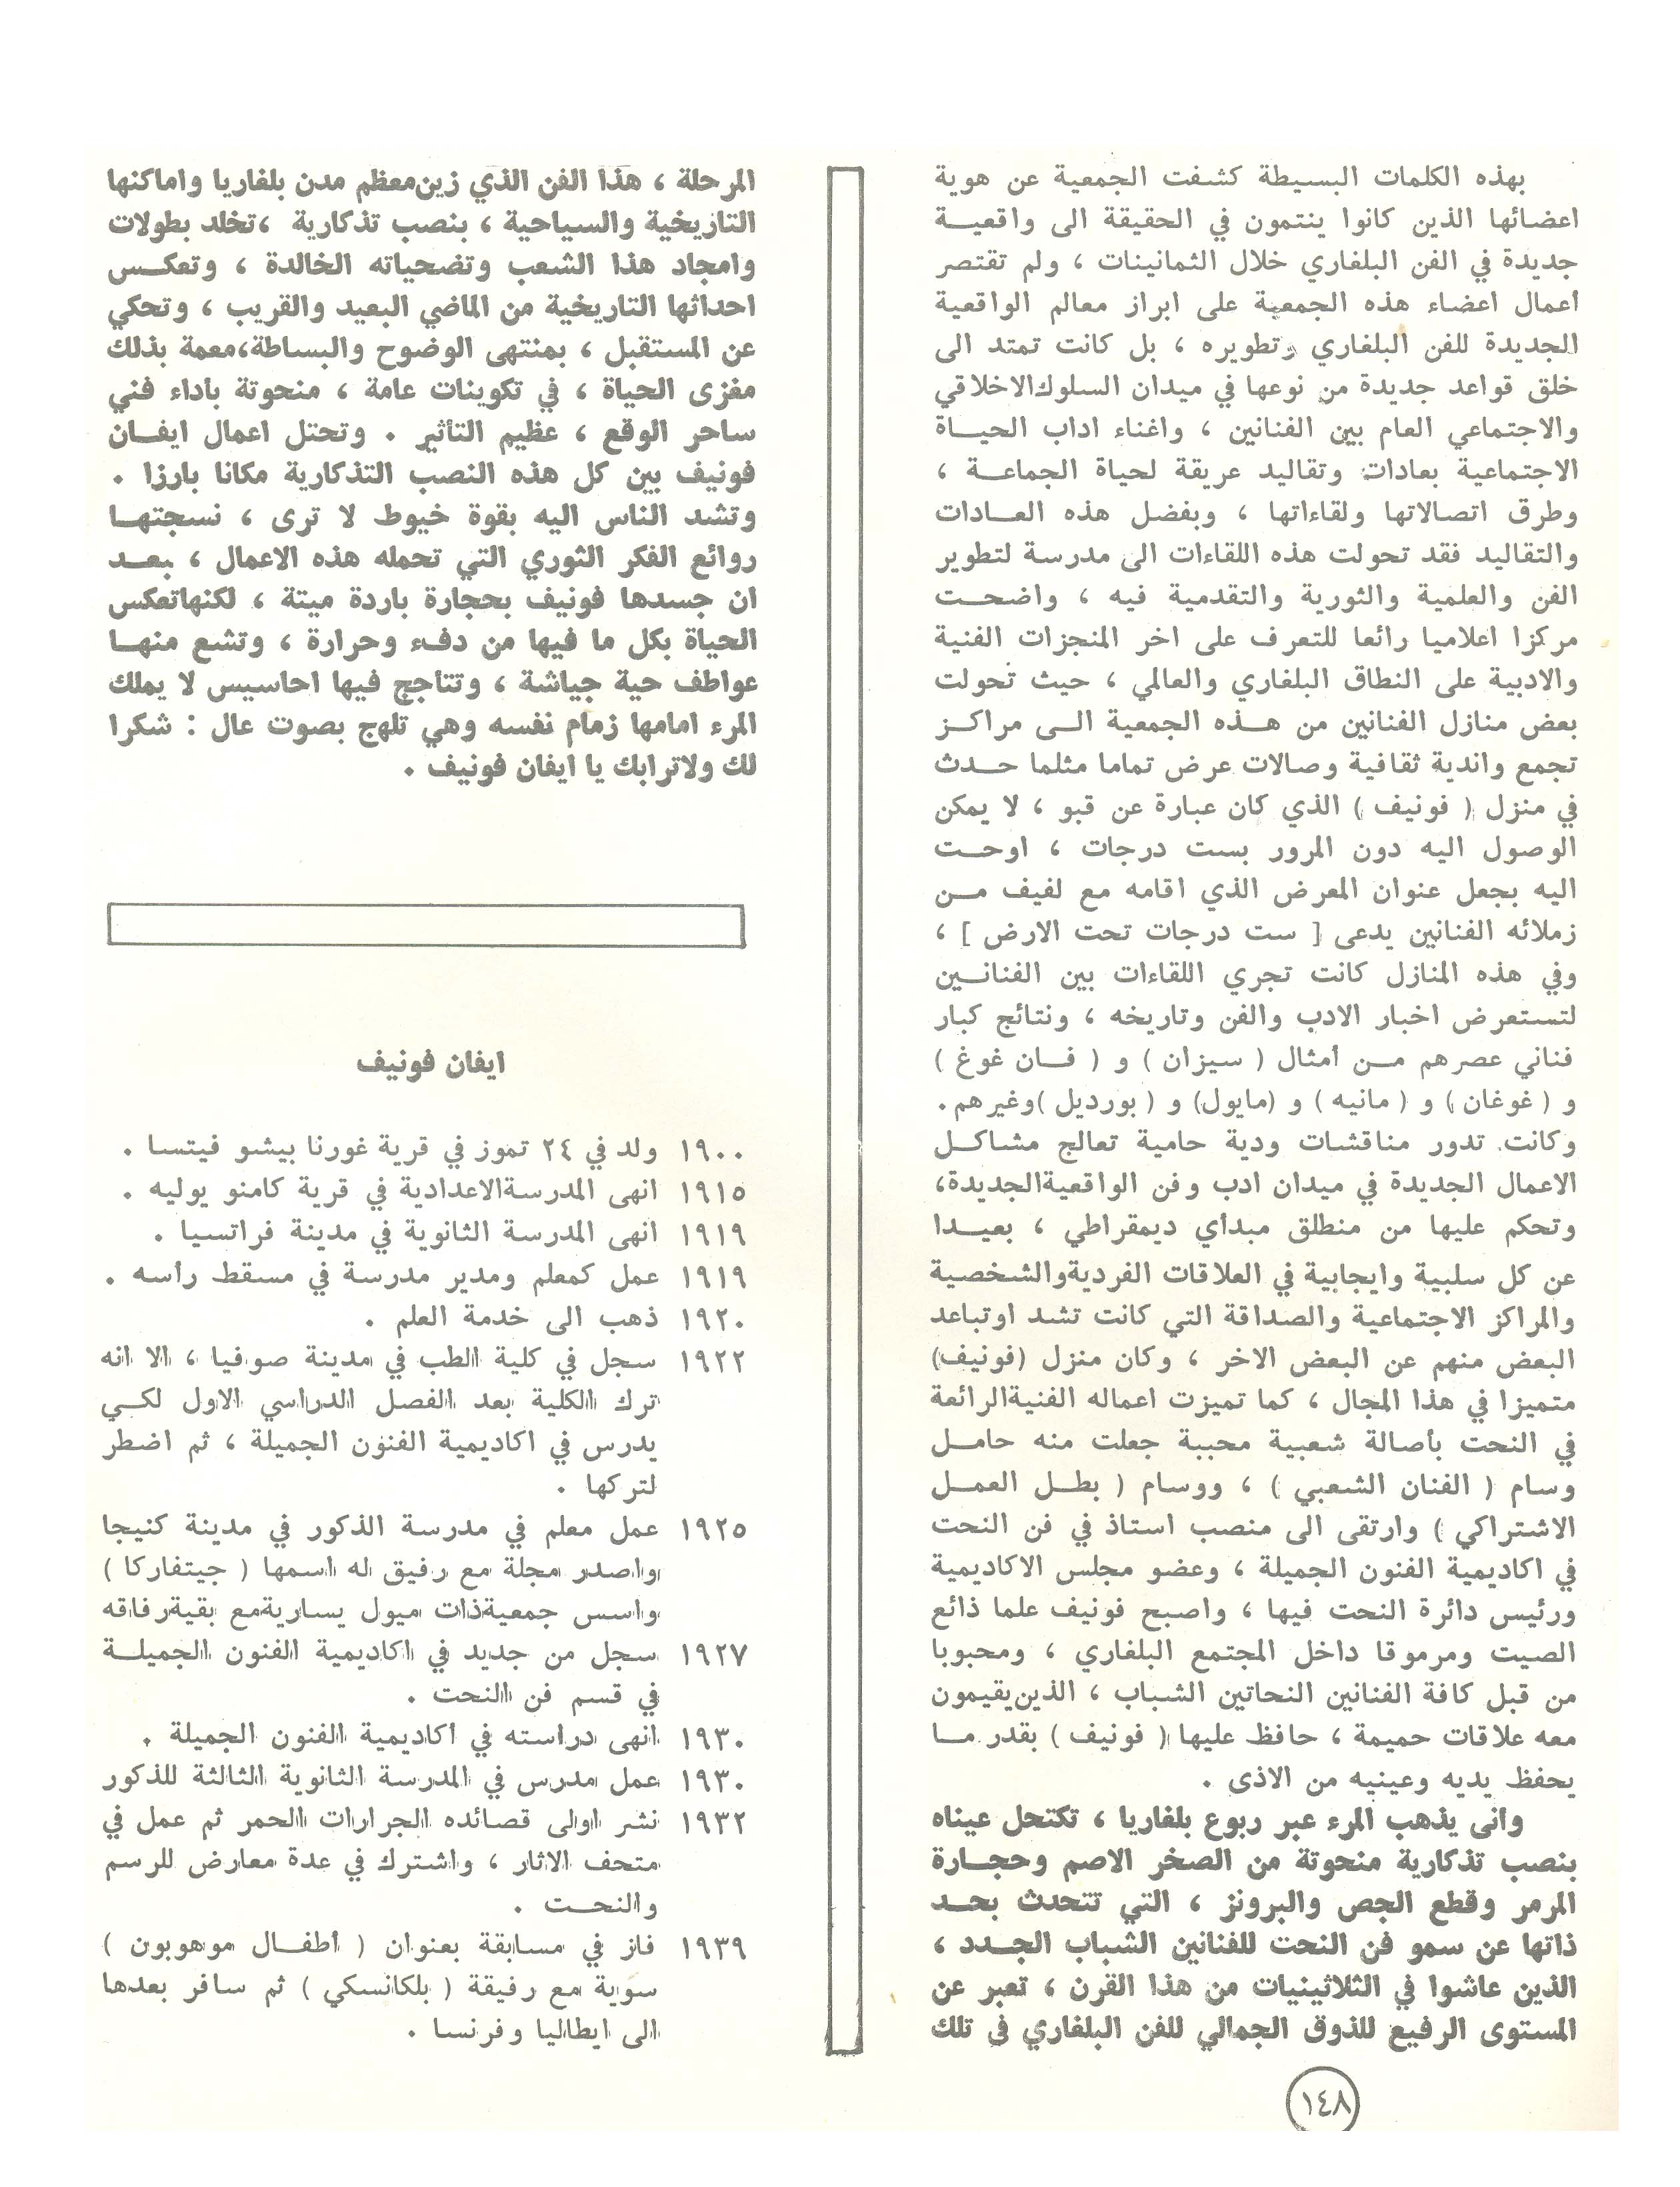 بهذه الكلمات البسيطة كشفت الجمعية عن هوية
اعضائها الذين كانوا ينتمون في الحقيقة الى واقعيـة
جديدة في الفن البلغاري خلال الثمانينات ، ولم تقتصر
أعمال اعضاء هذه الجمعية على ابراز معالم الواقعية
الجديدة للفن البلغاري وتطويره ، بل كانت تمتد الى
خلق قواعد جديدة من نوعها في ميدان السلوك الاخلاقي
والاجتماعي العام بين الفنانين ، واغناء اداب الحيـاة
الاجتماعية بعادات وتقاليد عريقة لحياة الجماعـة ،
وطرق اتصالاتها ولقاءاتها ، وبفضل هذه العـادات
والتقاليد فقد تحولت هذه اللقاءات الى مدرسة لتطوير
الفن والعلمية والثورية والتقدمية فيه ، واضحـت
مركزا اعلاميا رائعا للتعرف على اخر المنجزات الفنية
والادبية على النطاق البلغاري والعالمي ، حيث تحولت
بعض منازل الفنانين من هـذه الجمعية الـى مراكـز
تجمع واندية ثقافية وصالات عرض تماما مثلما حـدث
في منزل ( فونيف ) الذي كان عبارة عن قبو ، لا يمكن
الوصول اليه دون المرور بست درجات ، اوحـت
اليه بجعل عنوان المعرض الذي اقامه مع لفيف مـن
زملائه الفنانين يدعى [ ست درجات تحت الارض ] ،
وفي هذه المنازل كانت تجري اللقاءات بين الفنانـين
لتستعرض اخبار الادب والفن وتاريخه ، ونتائج كبار
فناني عصرهم مـن أمثال ( سيزان ) و ( فـان غوغ )
و ( غوغان ) و ( مانيه ) و (مايول) و ( بورديل )وغيرهم.
وكانت تدور مناقشات ودية حامية تعالج مشاكـل
الاعمال الجديدة في ميدان ادب وفن الواقعية الجديدة،
وتحكم عليها من منطلق مبدأي ديمقراطي ، بعيـدا
عن كل سلبية وايجابية في العلاقات الفردية والشخصية
والمراكز الاجتماعية والصداقة التي كانت تشد اوتباعد
البعض منهم عن البعض الاخر ، وكان منزل (فونيف)
متميزا في هذا المجال ، كما تميزت اعماله الفنية الرائعة
في النحت بأصالة شعبية محببة جعلت منه حامـل
وسام ( الفنان الشعبي ) ، ووسام ( بطـل العمـل
الاشتراكي ) وارتقى الى منصب استاذ في فن النحت
في اكاديمية الفنون الجميلة ، وعضو مجلس الاكاديمية
ورئيس دائرة النحت فيها ، واصبح فونيف علما ذائع
الصيت ومرموقا داخل المجتمع البلغاري ، ومحبوبا
من قبل كافة الفنانين النحاتين الشباب ، الذين يقيمون
معه علاقات حميمة ، حافظ عليها ( فونيف ) بقدر مـا
يحفظ يديه وعينيه من الاذى .
وانى يذهب المرء عبر ربوع بلغاريا ، تكتحل عيناه
بنصب تذكارية منحوتة من الصخر الاصم وحجـارة
المرمر وقطع الجص والبرونز ، التي تتحدث بحـد
ذاتها عن سمو فن النحت للفنانين الشباب الجـدد ،
الذين عاشوا في الثلاثينيات من هذا القرن ، تعبر عن
المستوى الرفيع للذوق الجمالي للفن البلغاري في تلك
المرحلة ، هذا الفن الذي زين معظم مدن بلغاريا واماكنها
التاريخية والسياحية ، بنصب تذكارية ،تخلد بطولات
وامجاد هذا الشعب وتضحياته الخالدة ، وتعكـس
احداثها التاريخية من الماضي البعيد والقريب ، وتحكي
عن المستقبل ، بمنتهى الوضوح والبساطة،معمة بذلك
مغزى الحياة ، في تكوينات عامة ، منحوتة باداء فني
ساحر الوقع ، عظيم التأثير . وتحتل اعمال ايفـان
فونيف بين كل هذه النصب التذكارية مكانا بارزا .
وتشد الناس اليه بقوة خيوط لا ترى ، نسجتهـا
روائع الفكر الثوري التي تحمله هذه الاعمال ، بعـد
ان جسدها فونيف بحجارة باردة ميتة ، لكنهاتعكس
الحياة بكل ما فيها من دفء وحرارة ، وتشع منهـا
عواطف حية جياشة ، وتتاجج فيها احاسيس لا يملك
المرء امامها زمام نفسه وهي تلهج بصوت عال : شكرا
لك ولاترابك يا ايفان فونيف .
ايفان فونيف
١٩٠٠ ولد في ٢٤ تموز في قرية غورنا بيشو فيتسا .
١٩١٥ انهى المدرسة الاعدادية في قرية كامنو يوليه .
١٩١٩ انهى المدرسة الثانوية في مدينة فراتسيا .
١٩١٩ عمل كمعلم ومدير مدرسة في مسقط رأسه .
١٩٢٠ ذهب الى خدمة العلم .
١٩٢٢ سجل في كلية الطب في مدينة صوفيا ، الا انه
ترك الكلية بعد الفصل الدراسي الاول لكـي
يدرس في اكاديمية الفنون الجميلة ، ثم اضطر
لتركها .
١٩٢٥ عمل معلم في مدرسة الذكور في مدينة كنيجا
واصدر مجلة مع رفيق له اسمها ( جيتفاركا )
واسس جمعية ذات ميول يسارية مع بقية رفاقه
١٩٢٧ سجل من جديد في اكاديمية الفنون الجميلـة
في قسم فن النحت .
١٩٣٠ انهى دراسته في أكاديمية الفنون الجميلة .
١٩٣٠ عمل مدرس في المدرسة الثانوية الثالثة للذكور
١٩٣٢ نشر اولى قصائده الجرارات الحمر ثم عمل في
متحف الاثار ، واشترك في عدة معارض للرسم
والنحـت .
١٩٣٩ فاز في مسابقة بعنوان ( أطفـال موهوبون )
سوية مع رفيقة ( بلكانسكي ) ثم سافر بعدها
الى ايطاليا وفرنسا .
١٤٨